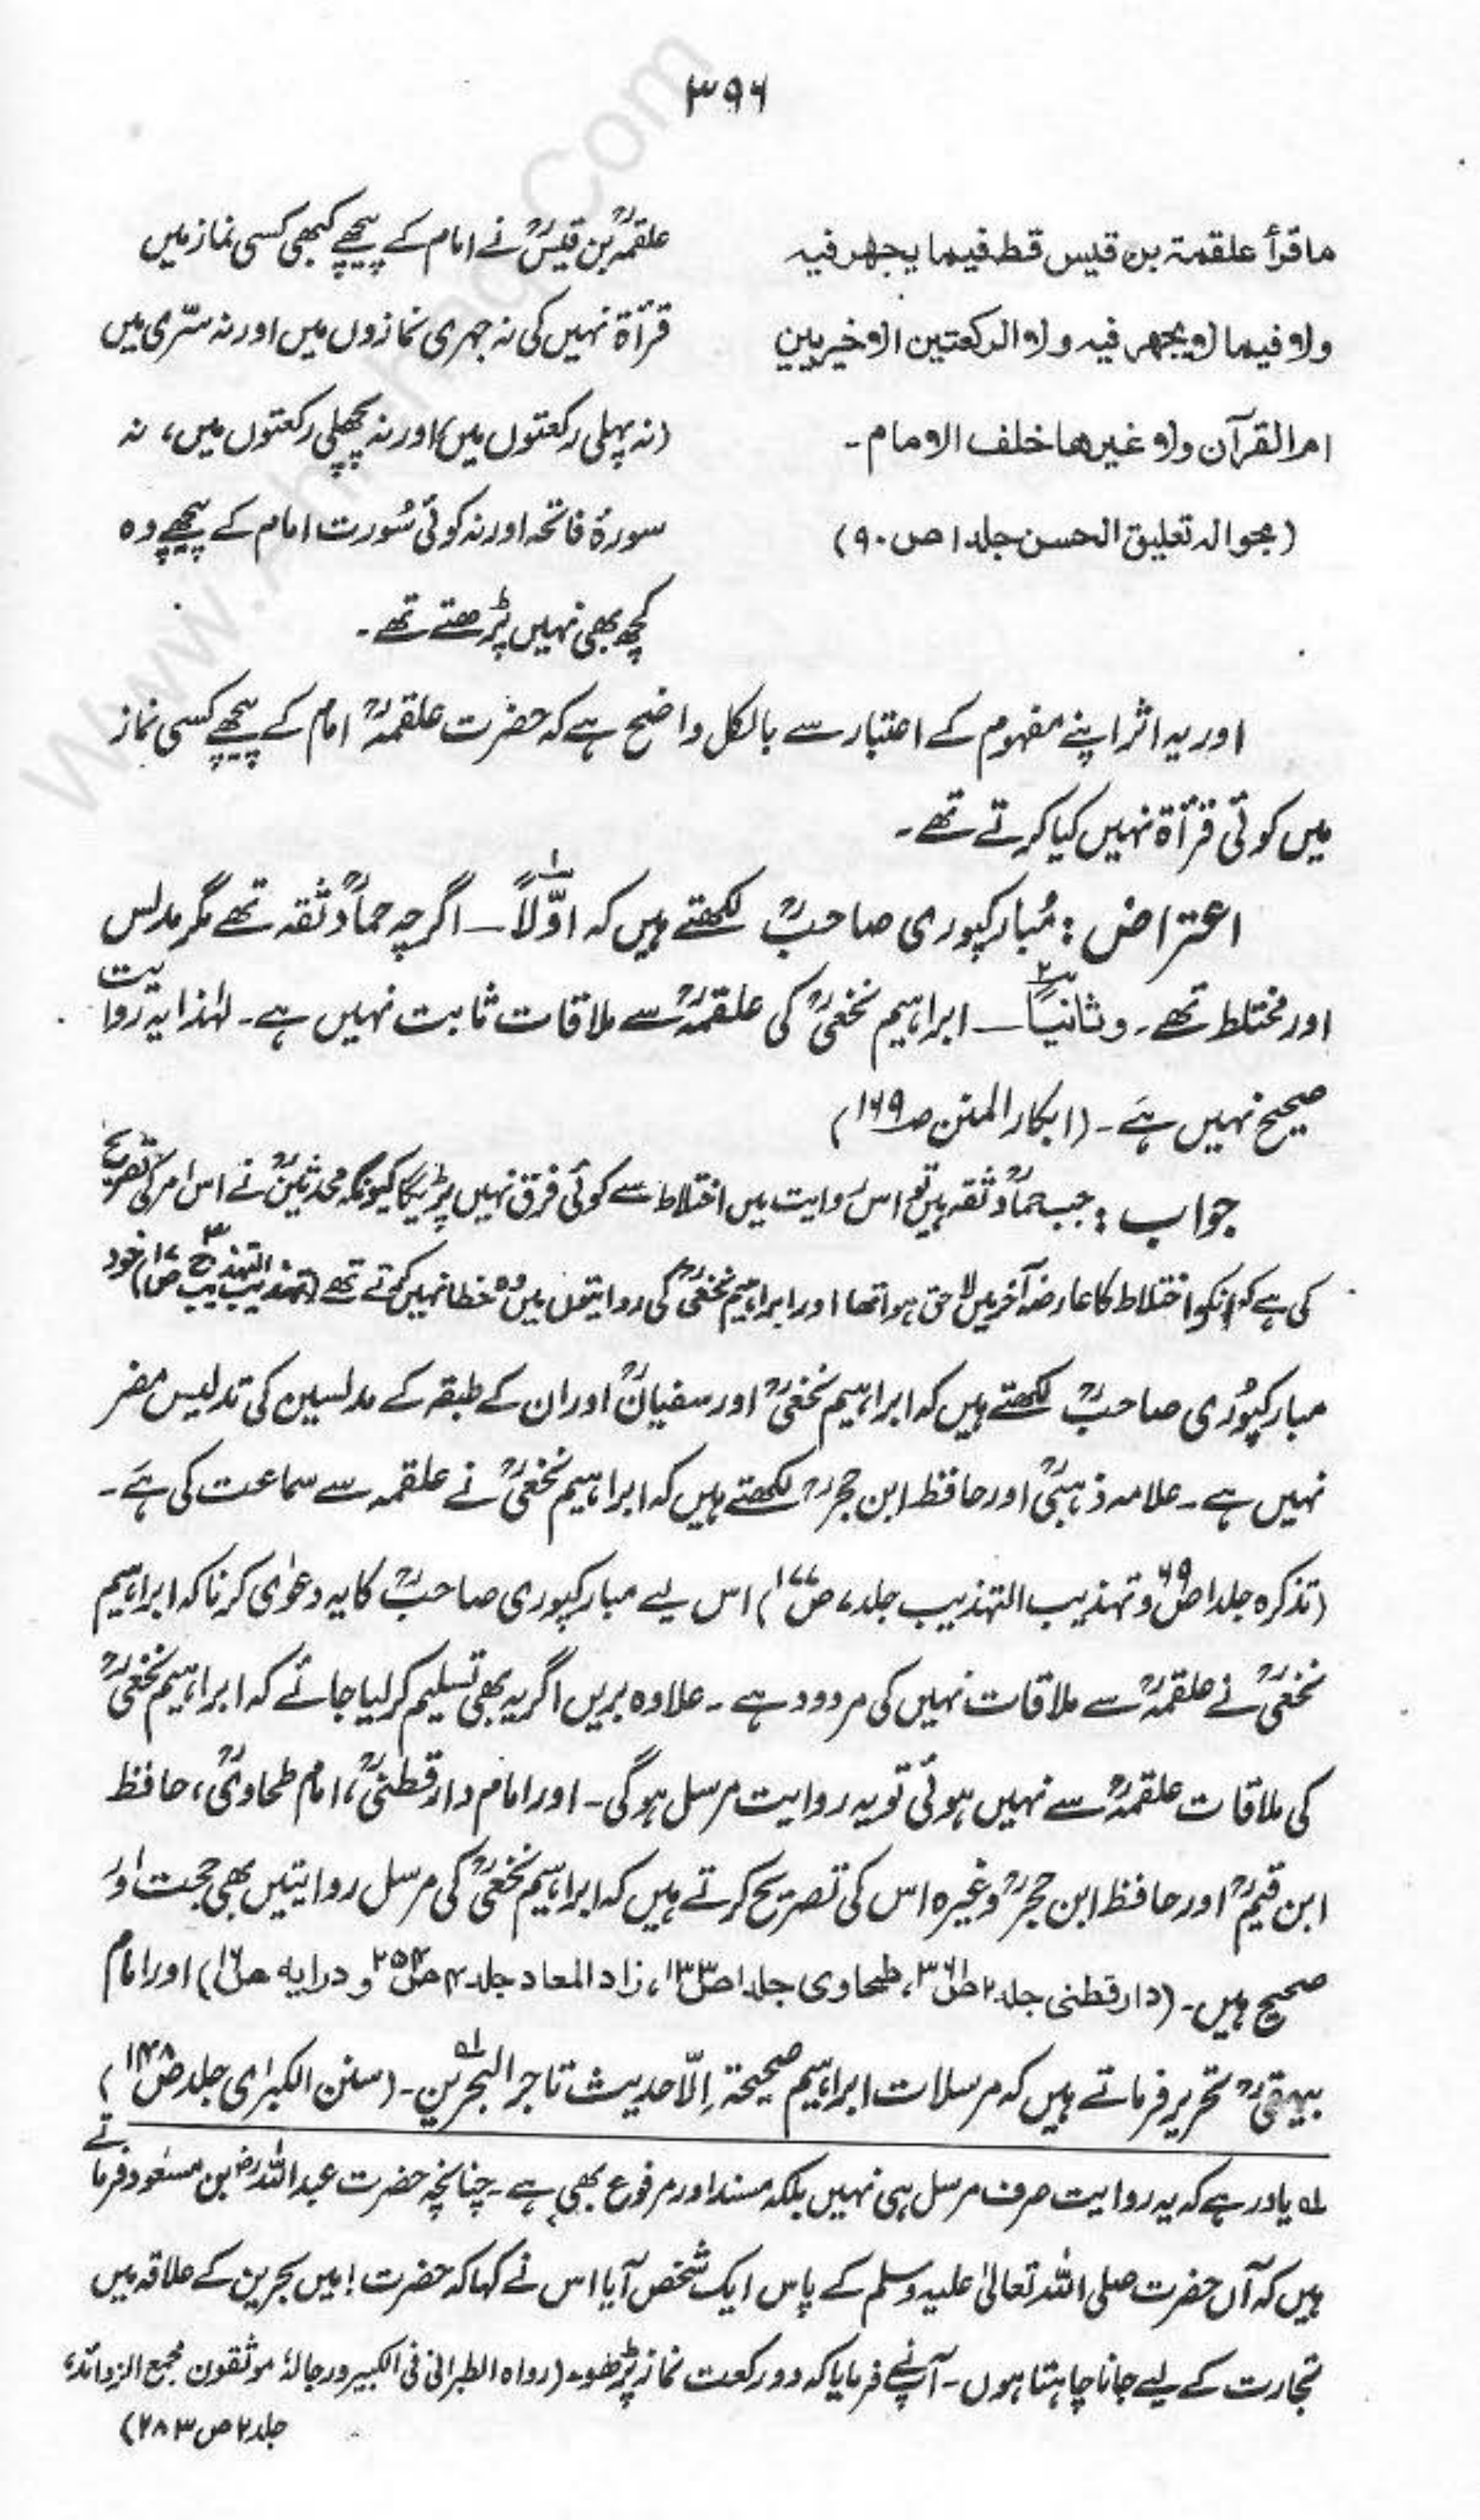 ۳۹۶
ما قرأ علقمۃ بن قیس قط فیما یجھر فیہ
ولا فیما لا یجھر فیہ ولا الرکعتین الاخیریین
ام القرآن ولا غیرھا خلف الامام۔
(بحوالہ تعلیق الحسن جلد ۱ ص ۹۰)
علقمہؒ بن قیسؒ نے امام کے پیچھے کبھی کسی نماز میں
قرأۃ نہیں کی نہ جہری نمازوں میں اور نہ سرّی میں
(نہ پہلی رکعتوں میں) اور نہ پچھلی رکعتوں میں، نہ
سورۂ فاتحہ اور نہ کوئی سُورت امام کے پیچھے وہ
کچھ بھی نہیں پڑھتے تھے۔
اور یہ اثر اپنے مفہوم کے اعتبار سے بالکل واضح ہے کہ حضرت علقمہؒ امام کے پیچھے کسی نماز
میں کوئی قرأۃ نہیں کیا کرتے تھے۔
اعتراض: مُبارکپوری صاحبؒ لکھتے ہیں کہ اوّلاً ۱؎ — اگرچہ حمادؒ ثقہ تھے مگر مدلس
اور مختلط تھے۔ وثانیاً ۲؎ — ابراہیم نخعیؒ کی علقمہؒ سے ملاقات ثابت نہیں ہے۔ لہٰذا یہ روایت
صحیح نہیں ہے۔ (ابکار المنن ص ۱۶۹)
جواب: جب حمادؒ ثقہ ہیں تو اس روایت میں اختلاط سے کوئی فرق نہیں پڑیگا کیونکہ محدثینؒ نے اس امر کی تصریح
کی ہے کہ انکو اختلاط کا عارضہ آخر میں لاحق ہوا تھا اور ابراہیم نخعیؒ کی روایتوں میں وہ خطا نہیں کرتے تھے (تہذیب التہذیب ج ۳ ص ۱۷) خود
مبارکپُوری صاحبؒ لکھتے ہیں کہ ابراہیم نخعیؒ اور سفیانؒ اور ان کے طبقہ کے مدلسین کی تدلیس مضر
نہیں ہے۔ علامہ ذہبیؒ اور حافظ ابن حجرؒ لکھتے ہیں کہ ابراہیم نخعیؒ نے علقمہ سے سماعت کی ہے۔
(تذکرہ جلد ۱ ص ۶۹ و تہذیب التہذیب جلد ۷ ص ۱۷۷) اس لیے مبارکپوری صاحبؒ کا یہ دعوٰی کرنا کہ ابراہیم
نخعیؒ نے علقمہؒ سے ملاقات نہیں کی مردود ہے۔ علاوہ بریں اگر یہ بھی تسلیم کر لیا جائے کہ ابراہیم نخعیؒ
کی ملاقات علقمہؒ سے نہیں ہوئی تو یہ روایت مرسل ہوگی۔ اور امام دارقطنیؒ، امام طحاویؒ، حافظ
ابن قیمؒ اور حافظ ابن حجرؒ وغیرہ اس کی تصریح کرتے ہیں کہ ابراہیم نخعیؒ کی مرسل روایتیں بھی حجت اور
صحیح ہیں۔ (دارقطنی جلد ۲ ص ۳۶۱، طحاوی جلد ۱ ص ۱۳۳، زاد المعاد جلد ۴ ص ۲۵۴ و درایہ ص ۱۶) اور امام
بیہقیؒ تحریر فرماتے ہیں کہ مرسلات ابراہیم صحیحۃ اِلّا حدیث تاجر البحرین۔۱؎ (سنن الکبرٰی جلد ۱ ص ۱۴۸)
۱؎ یاد رہے کہ یہ روایت صرف مرسل ہی نہیں بلکہ مسند اور مرفوع بھی ہے۔ چنانچہ حضرت عبداللہؓ بن مسعود فرماتے
ہیں کہ آں حضرت صلی اللہ تعالیٰ علیہ وسلم کے پاس ایک شخص آیا اس نے کہا کہ حضرت! میں بحرین کے علاقہ میں
تجارت کے لیے جانا چاہتا ہوں۔ آپنے فرمایا کہ دو رکعت نماز پڑھو۔ (رواہ الطبرانی فی الکبیر ورجالہٗ موثقون مجمع الزوائد،
جلد ۲ ص ۲۸۳)